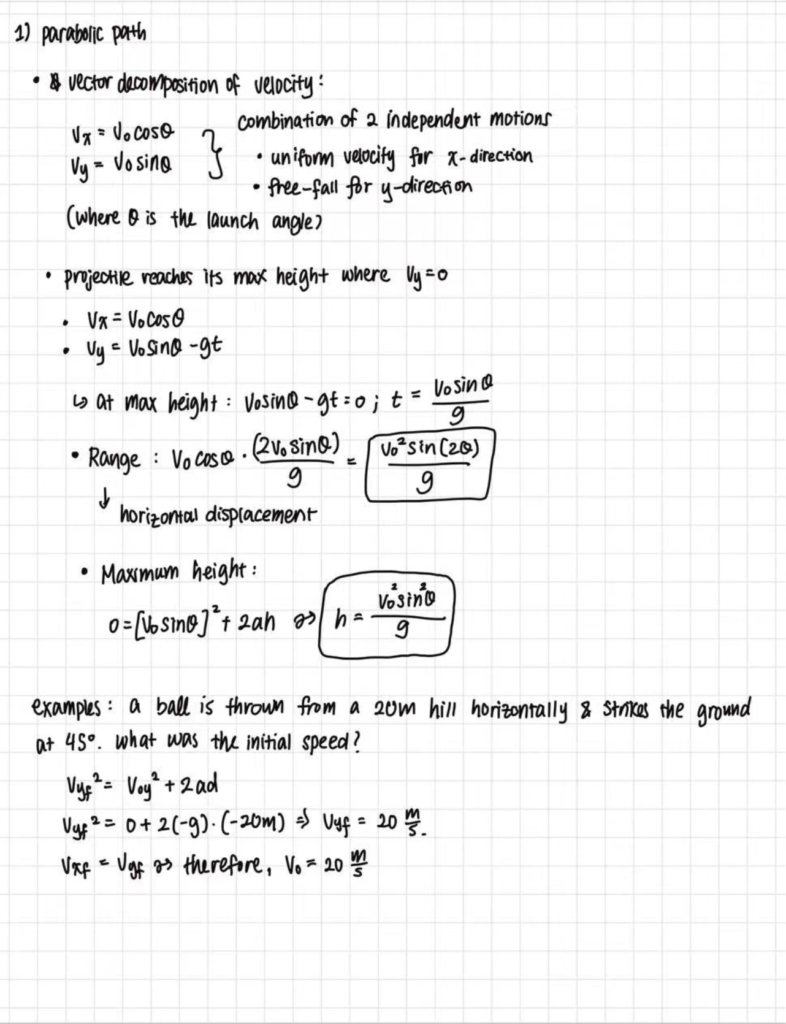 1) parabolic path
• & vector decomposition of velocity:
Vx = V₀cosθ
Vy = V₀sinθ
} combination of 2 independent motions
• uniform velocity for x-direction
• free-fall for y-direction
(where θ is the launch angle)
• projectile reaches its max height where Vy=0
• Vx = V₀cosθ
• Vy = V₀sinθ -gt
↳ at max height: V₀sinθ-gt=0; t = V₀sinθ/g
• Range: V₀cosθ · (2V₀sinθ)/g = V₀²sin(2θ)/g
↓ horizontal displacement
• Maximum height:
0=[V₀sinθ]²+ 2ah ⇒ h = V₀²sin²θ/g
examples: a ball is thrown from a 20m hill horizontally & strikes the ground
at 45°. what was the initial speed?
Vyf² = Voy² + 2ad
Vyf² = 0+2(-g)·(-20m) ⇒ Vyf = 20 m/s.
Vxf = Vyf ⇒ therefore, V₀ = 20 m/s